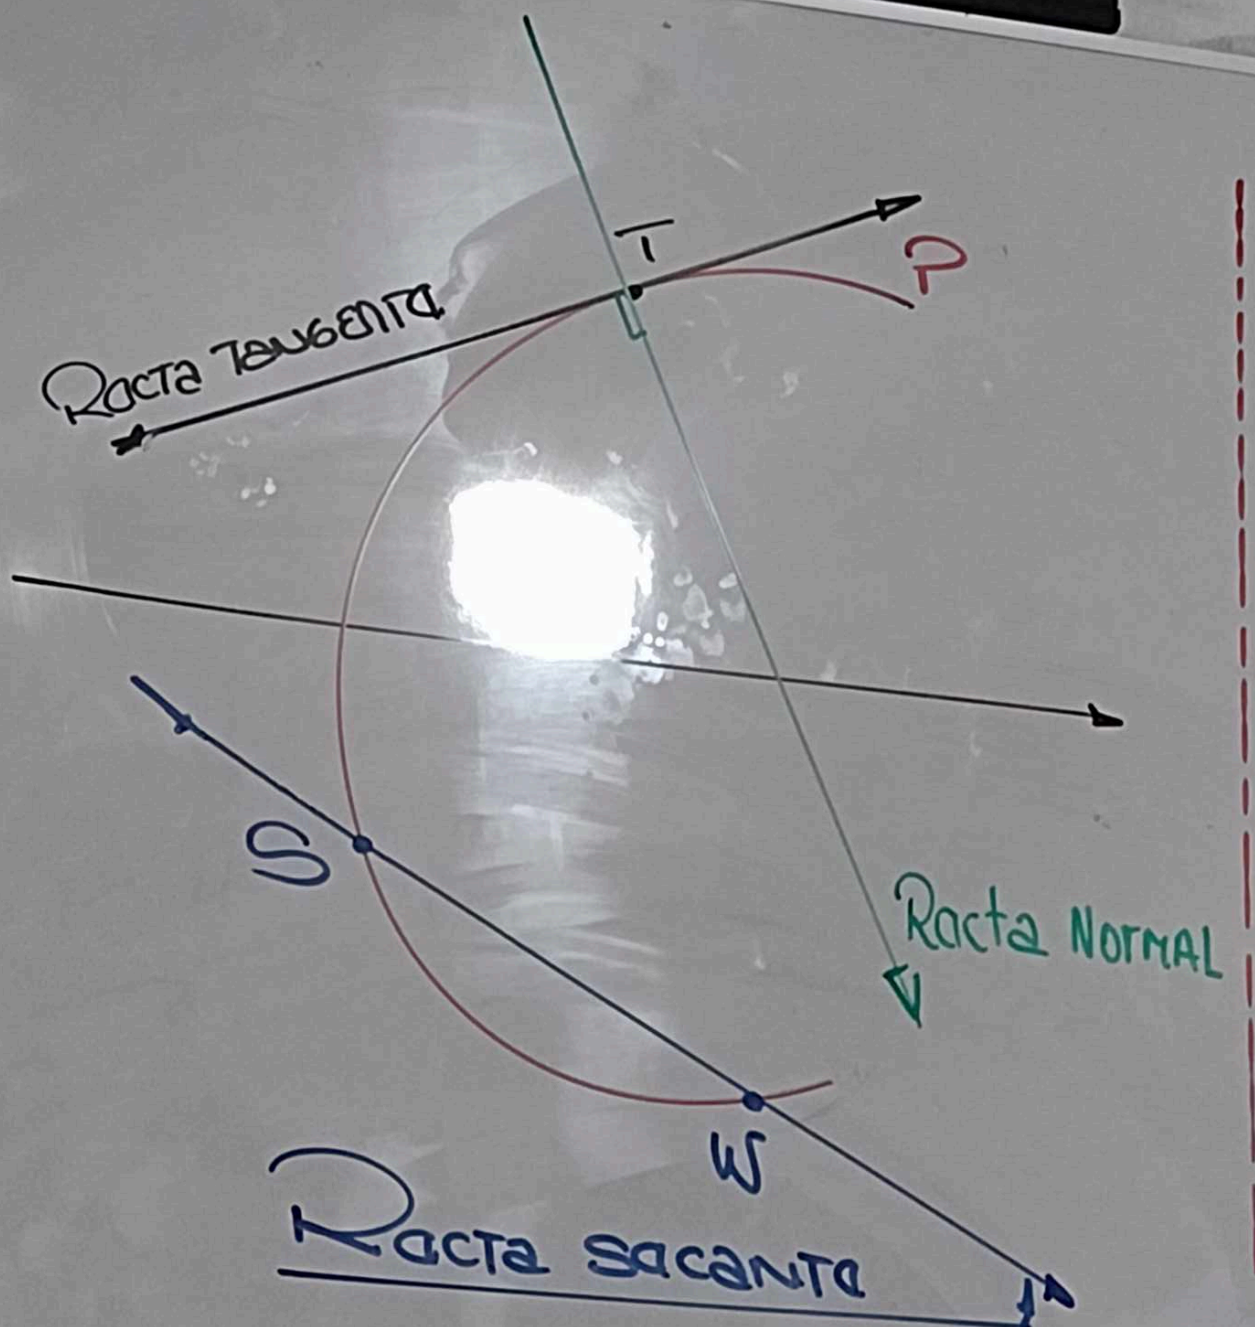 T
P
Recta TANGENTE
S
Recta NORMAL
W
Recta secante